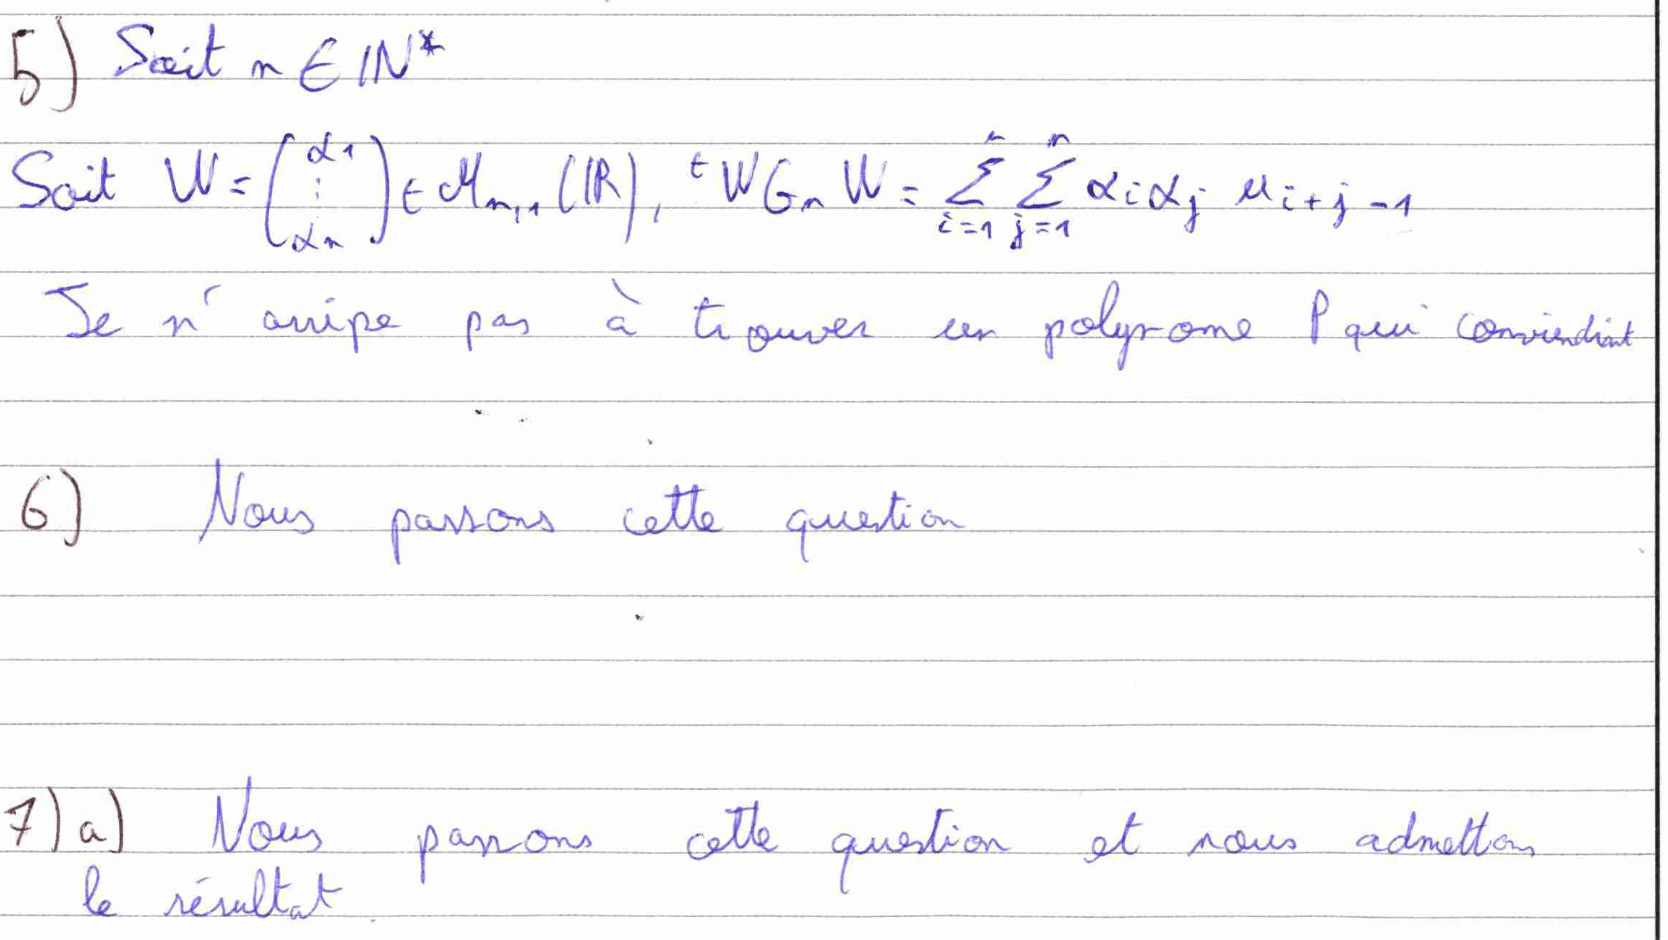 5) Soit n ∈ IN*
Soit W = (α1 ⋮ αn) ∈ Mn,1 (IR), ᵗWGnW = Σ_{i=1}^{n} Σ_{j=1}^{n} αi αj μi+j-1
Je n'arripe pas à trouver un polynome P qui conviendrait
6) Nous passons cette question
7)a) Nous passons cette question et nous admettons
le résultat.